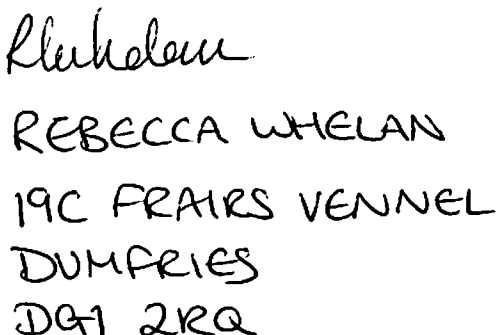 REBECCA WHELAN
19C FRAIRS VENNEL
DUMFRIES
DG1 2RQ